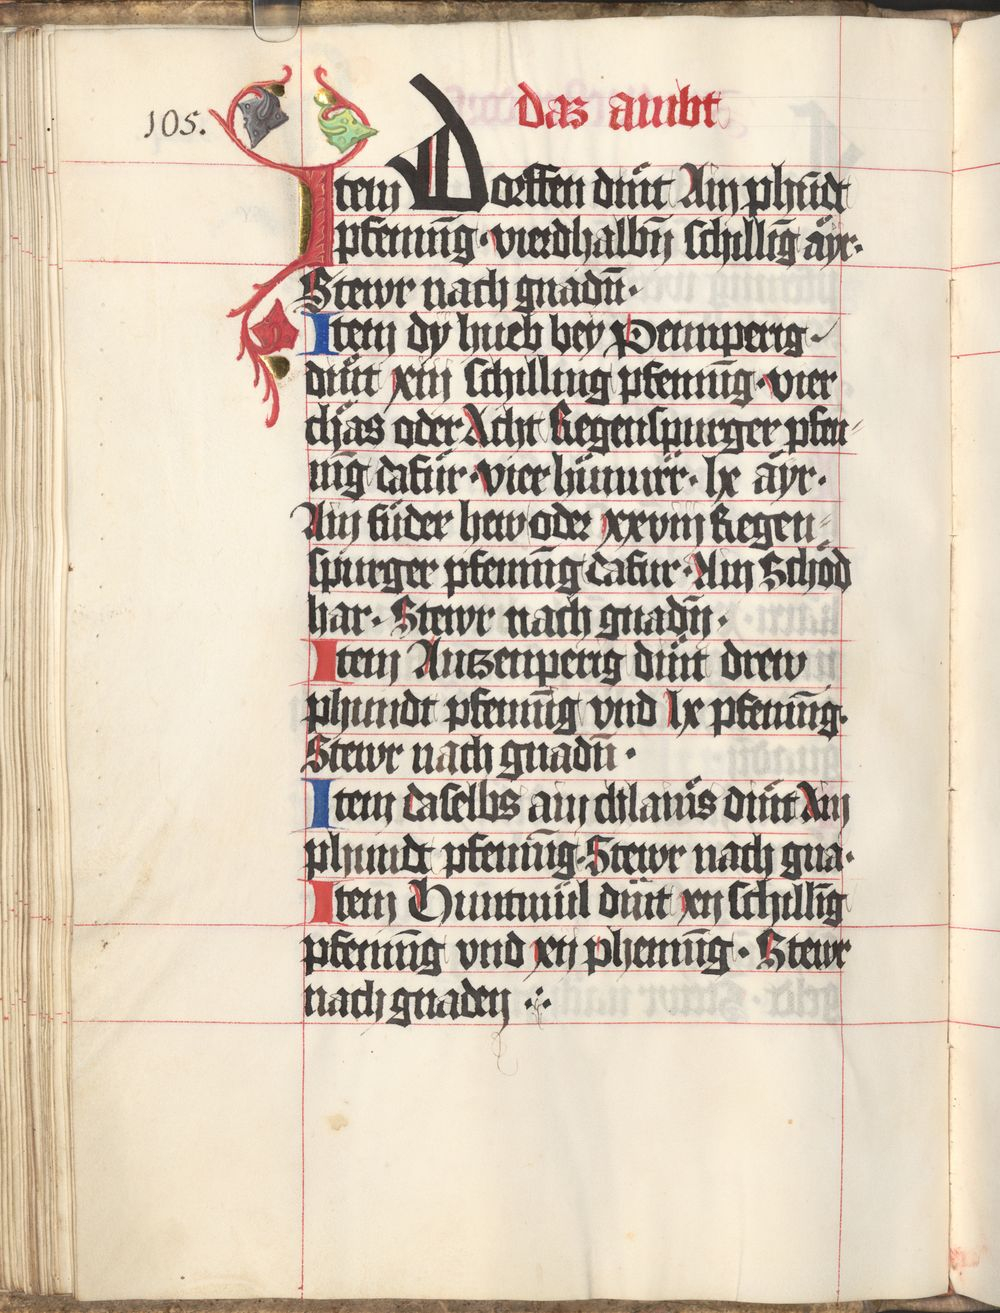 105.
das ambt
Item Dorffen diint Ain phūdt
pfeniñg · vierdhalbñ schilliñg äyr·
Stewr nach gnadñ·
Item dy hueb bey Pempperig
diint xiij schilling pfeniñg · vier
chäs oder Acht Regenspurger pfen-
niñg dafür · vier hünner · lx äyr·
Ain füder hew oder xxviij Regen-
spurger pfeniñg dafur · Ain Schöd
har · Stewr nach gnadñ·
Item Auzenperig diint drew
phundt pfeniñg vnd lx pfeniñg·
Stewr nach gnadñ ·
Item daselbs ain chlaüs diint Ain
phundt pfeniñg· Stewr nach gna·
Item Huntmül diint xij schilliñg
pfeniñg vnd xij pheniñg · Stewr
nach gnaden